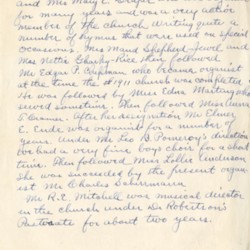 and Miss Mary E. Draper
for many years and was a very active
member of the Church, writing quite a
number of hymns that were used on special
occasions. Miss Maud Shepherd-Jewel and
Mrs Nettie Charity-Rice then followed.
Mr Edgar F. Chapman who became organist
at the time the 1911 church was completed
He was followed by Miss Edna Martin, who
served sometime. Then followed Miss Anna
Cramer. After her resignation Mr Elmer
E. Eude was organist for a number of
years. Under Mr Leo B. Pomeroy's direction
we had a very fine boys choir for a short
time. Then followed Miss Lollie Anderson
She was succeeded by the present organ-
ist Mr Charles Schirmann
Mr R.E. Mitchell was musical director
in the church under Dr Robertson's
Pastorate for about two years.